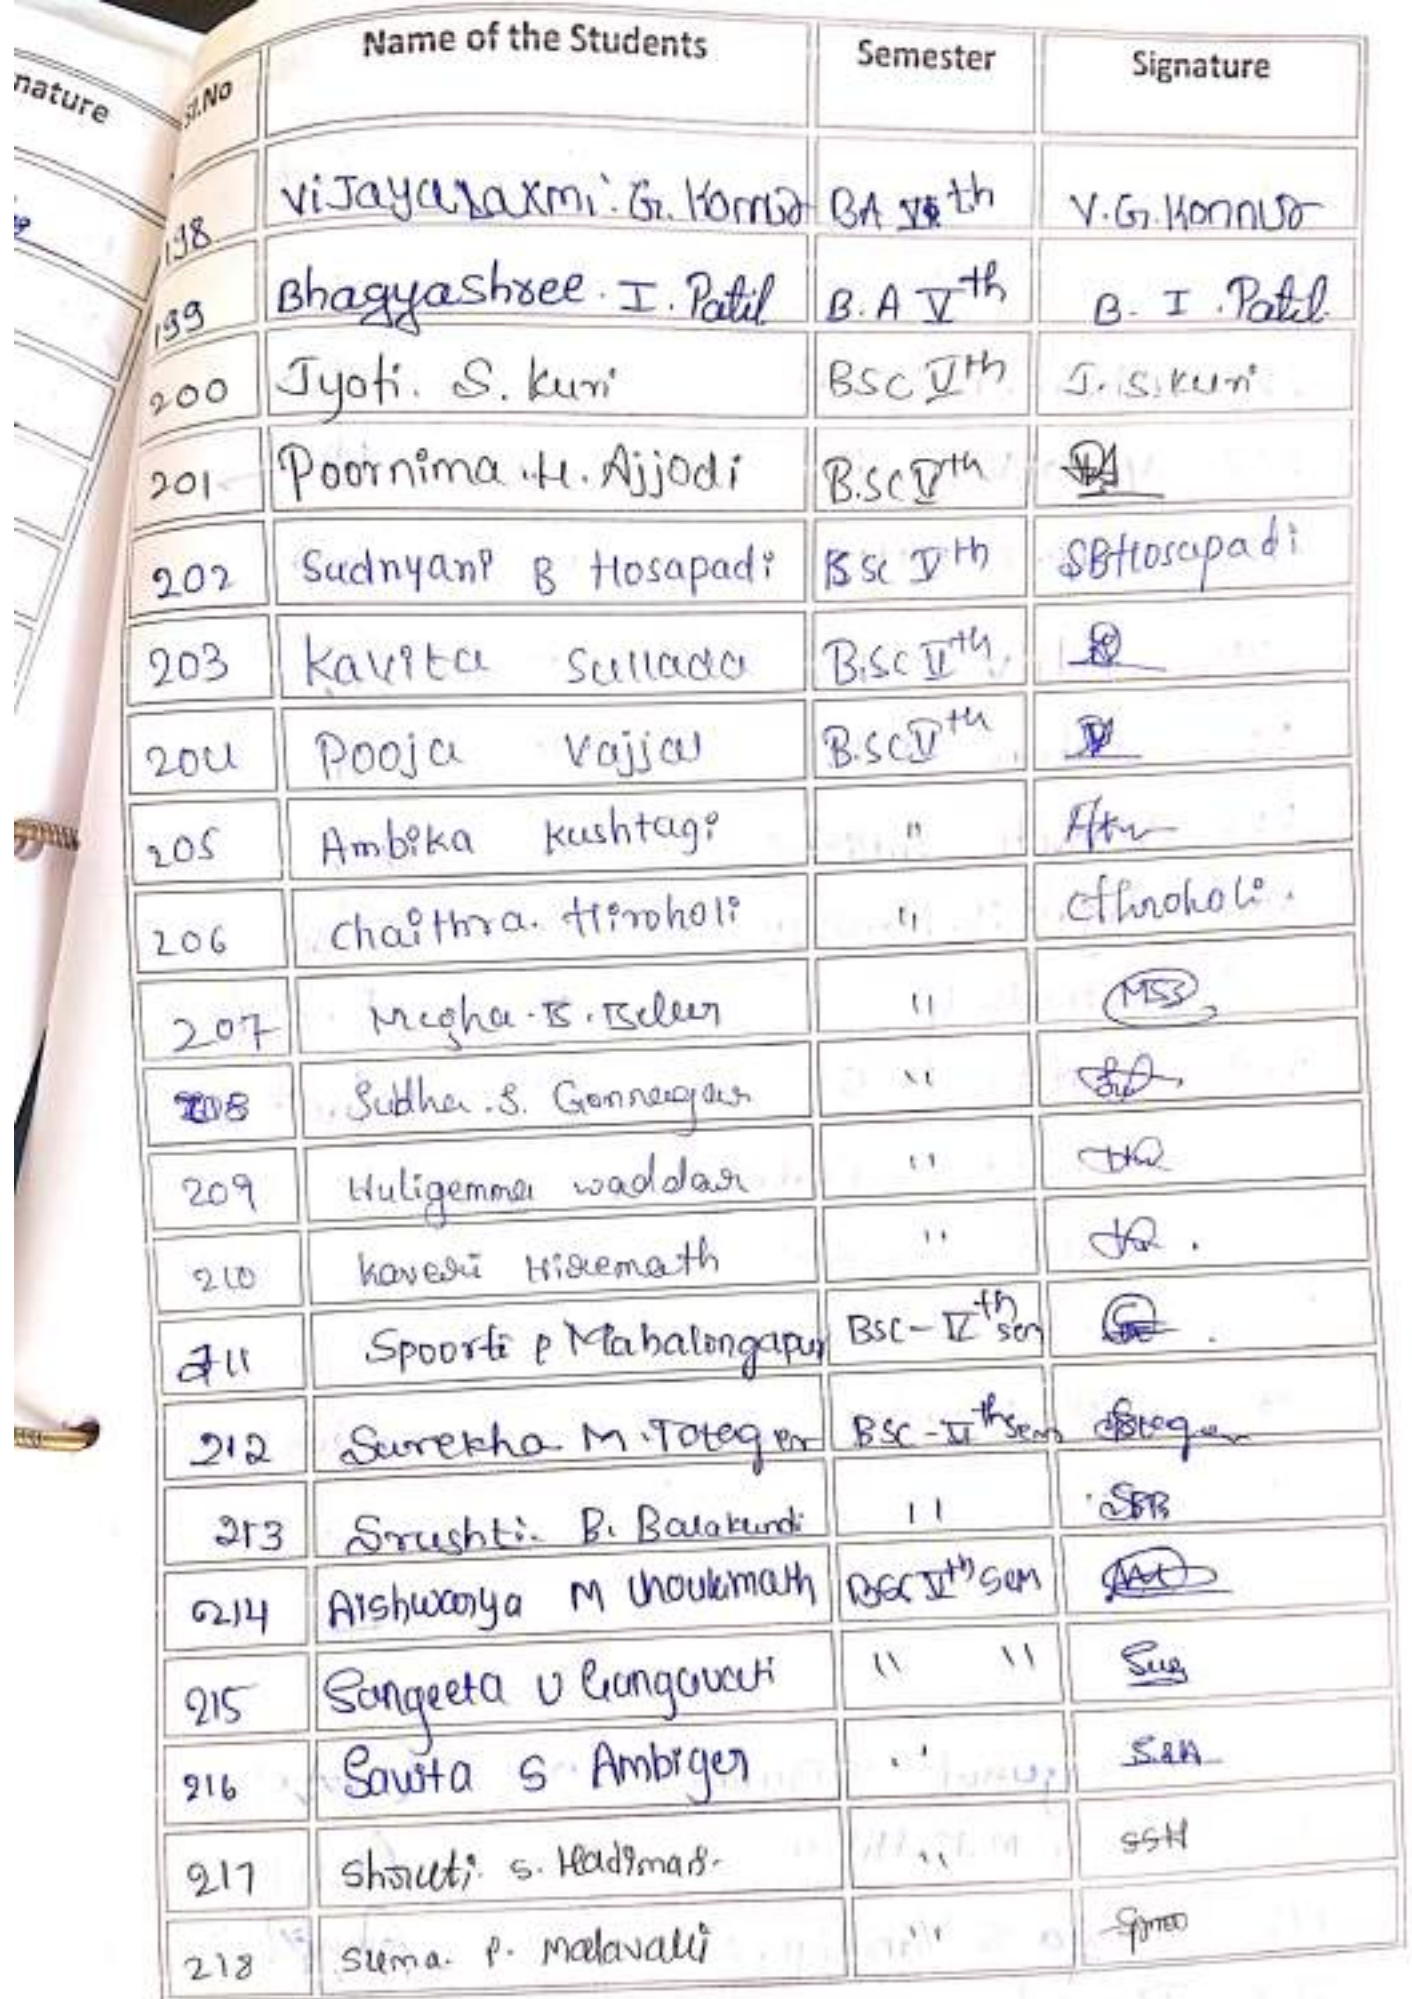 nature
Sl.No Name of the Students Semester Signature
198 Vijayalaxmi. G. Konnur BA th V.G.Konnur
199 Bhagyashree. I. Patil B.A Vth B. I. Patil
200 Jyoti. S. Kuri BSC Vth J.S.Kuri
201 Poornima .H. Ajjodi B.Sc Vth
202 Sudnyani B Hosapadi BSc Vth SBHosapadi
203 Kavita Sullada B.Sc Vth
204 Pooja Vajjal B.Sc Vth
205 Ambika Kushtagi "
206 Chaithra. Hiroholi " CHiroholi.
207 Megha.B.Belur "
208 Sudha.S. Gonnagar "
209 Huligemma waddar "
210 Kaveri Hiremath "
211 Spoorti P Mahalingapur BSC-Vth sem
212 Surekha M. Toteger BSC-Vth sem
213 Srushti. B. Balakundi " SBB
214 Aishwarya M Choukimath BSC Vth Sem
215 Sangeeta U Gangavati " "
216 Savita S Ambiger " S.S.A
217 Shruti. S. Hadimani. " SSH
218 Suma. P. Malavalli "